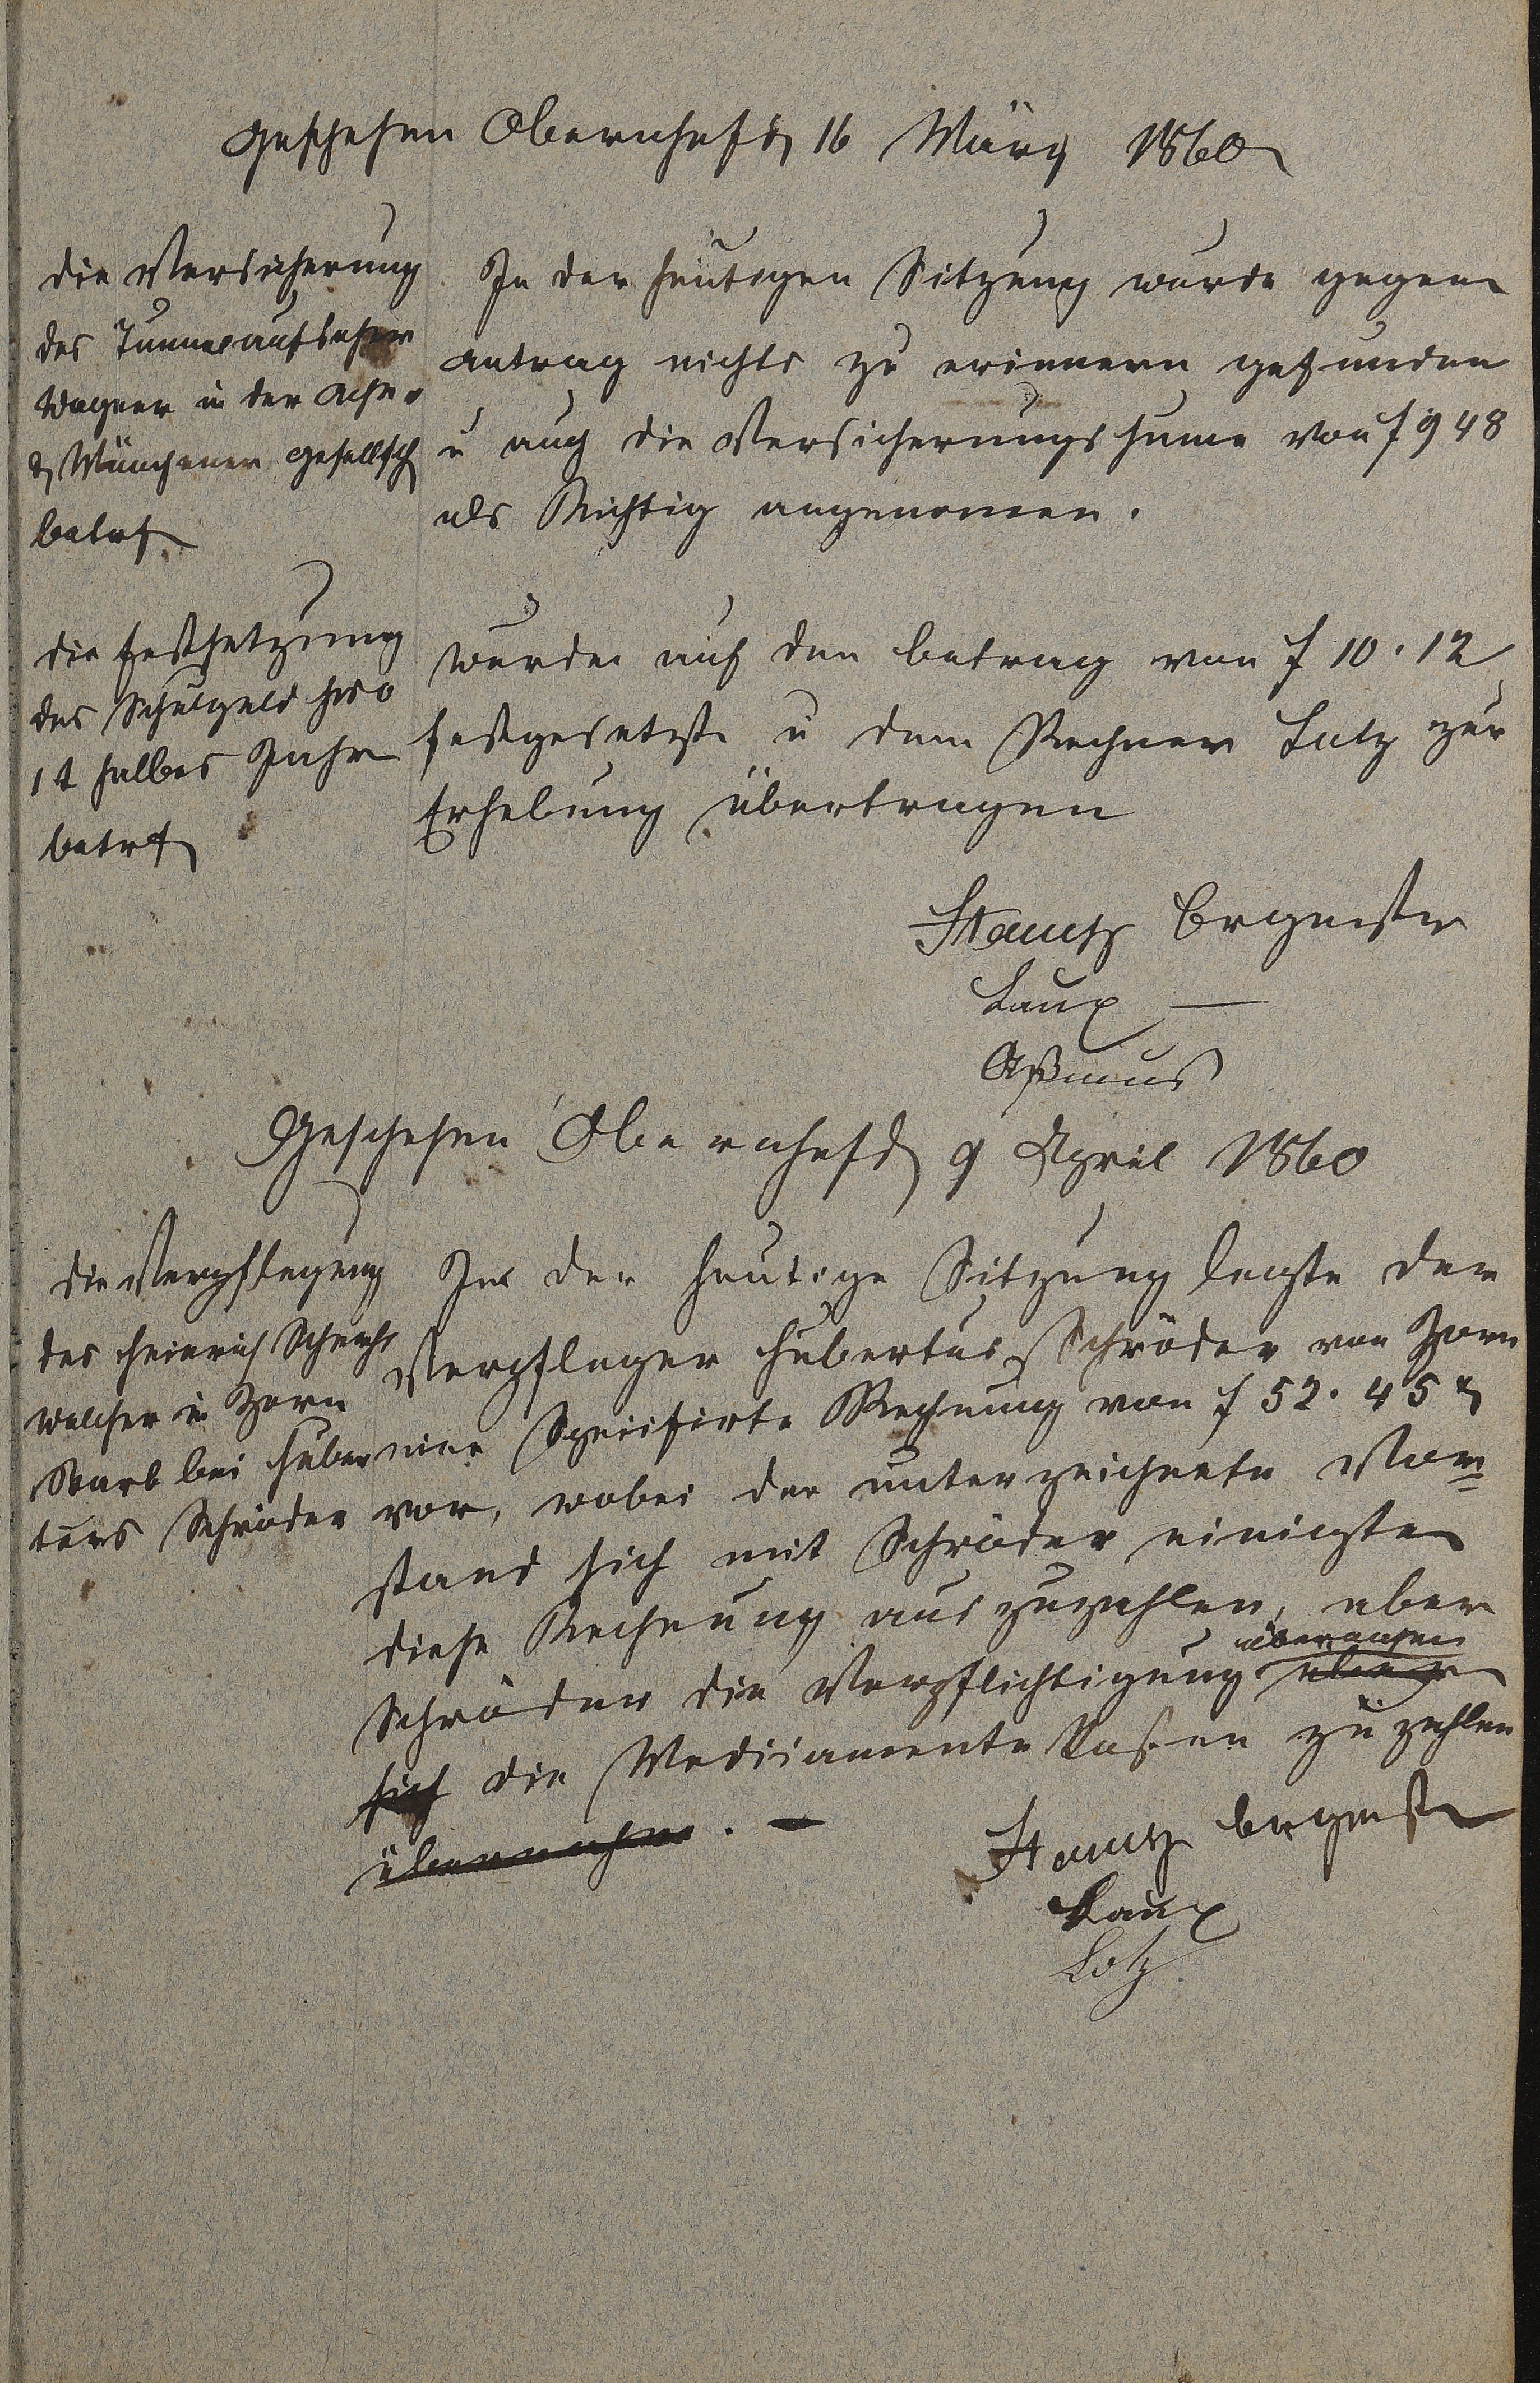 Geschehen Obernhof d 16 März 1860
die Versicherung
des Tunnelaufseher
Wagner in der Achn.
& Münchener Gesellsch
betrf
In der heutigen Sitzung wurde gegen
Antrag nichts zu erinnern gefunden
u auch die Versicherungssume von f 948
als Richtig angenomen.
die Festsetzung
des Schulgeld pro
1t halbes Jahr
betrf
wurde auf den betrag von f 10. 12
festgesetzt u dem Rechner Lotz zur
Erhebung übertragen
Brgmeister
Laux —
Aßmus
Geschehen Obernhof d 9 April 1860
die Verpflegung
des Heinrich
welcher in Zorn
Starb bei Huber
tus Schröder
In der heutige Sitzung legte der
Verpfleger Hubertus Schröder von Zorn
eine Specifirte Rechnung von f 52. 45 x
vor, wobei der unterzeichnete Vor=
stand sich mit Schröder einigte
diese Rechnung auszuzahlen, aber
Schröder die Verpflichtigung
sich die Medicamente Kosten zu zahlen
übernahm. —
Brgmeist
Laux
Lotz